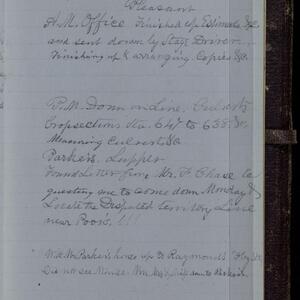 Pleasant
A.M. Office Finished up Estimate &c
and sent down by Stage Driver
Finishing up & arranging Copies &c.
P.M. Down on Line, Culverts
Cropsections Sta. 647 to 638 &c.
Measuring Culverts &c
Parker's. Supper
Found Letter from Mr. F. Chase re
questing me to come down Monday &
Locate the Disputed territory Line
near Poor's. !!!
Mr. Parker's horse up to Raymond's
Did not see